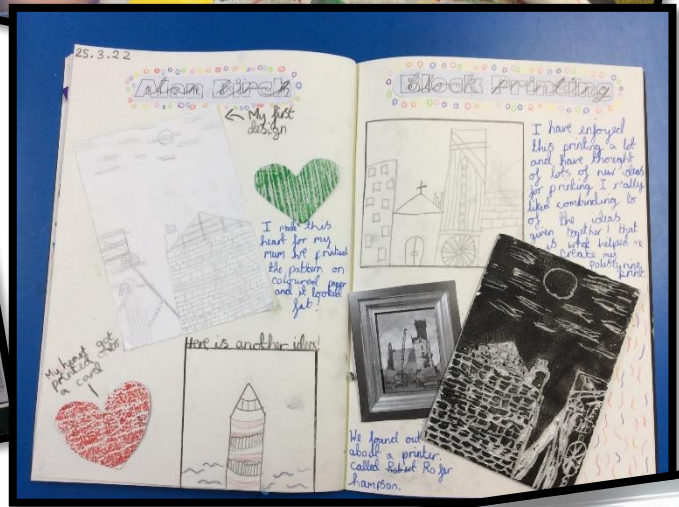 25.3.22
Alan Birch
My first
design
I made this
heart for my
mum We printed
the pattern on
coloured paper
and it looked
fab!
My heart got
printed onto
a card
Here is another idea!
Block Printing
I have enjoyed
this printing a lot
and have thought
of lots of new ideas
for printing I really
liked combinding lot
of the ideas
given together! that
is what helped me
create my
polestyrene
print.
We found out
about a printer.
called Robert Roger
hampson.